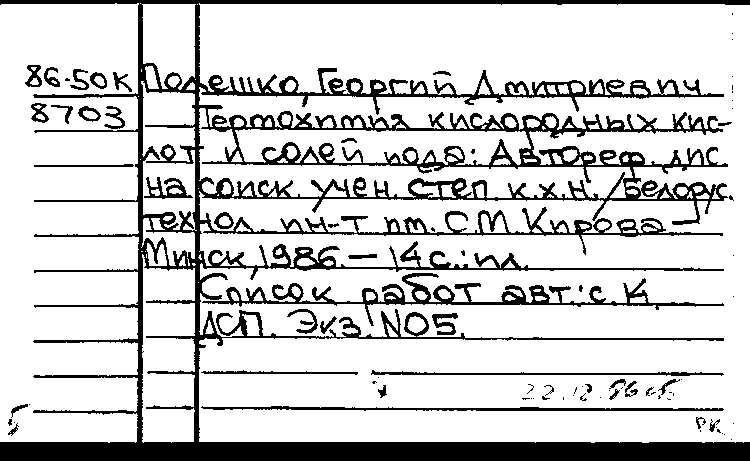 86-50К Полешко, Георгий Дмитриевич.
8703 Термохимия кислородных кис-
лот и солей иода: Автореф. дис.
на соиск. учен. степ. к.х.н. / Белорус.
технол. ин-т им. С.М. Кирова —
Минск, 1986. — 14 с.: ил.
Список работ авт.: с. 14.
ДСП. Экз. №05.
22.12.86
5
РК